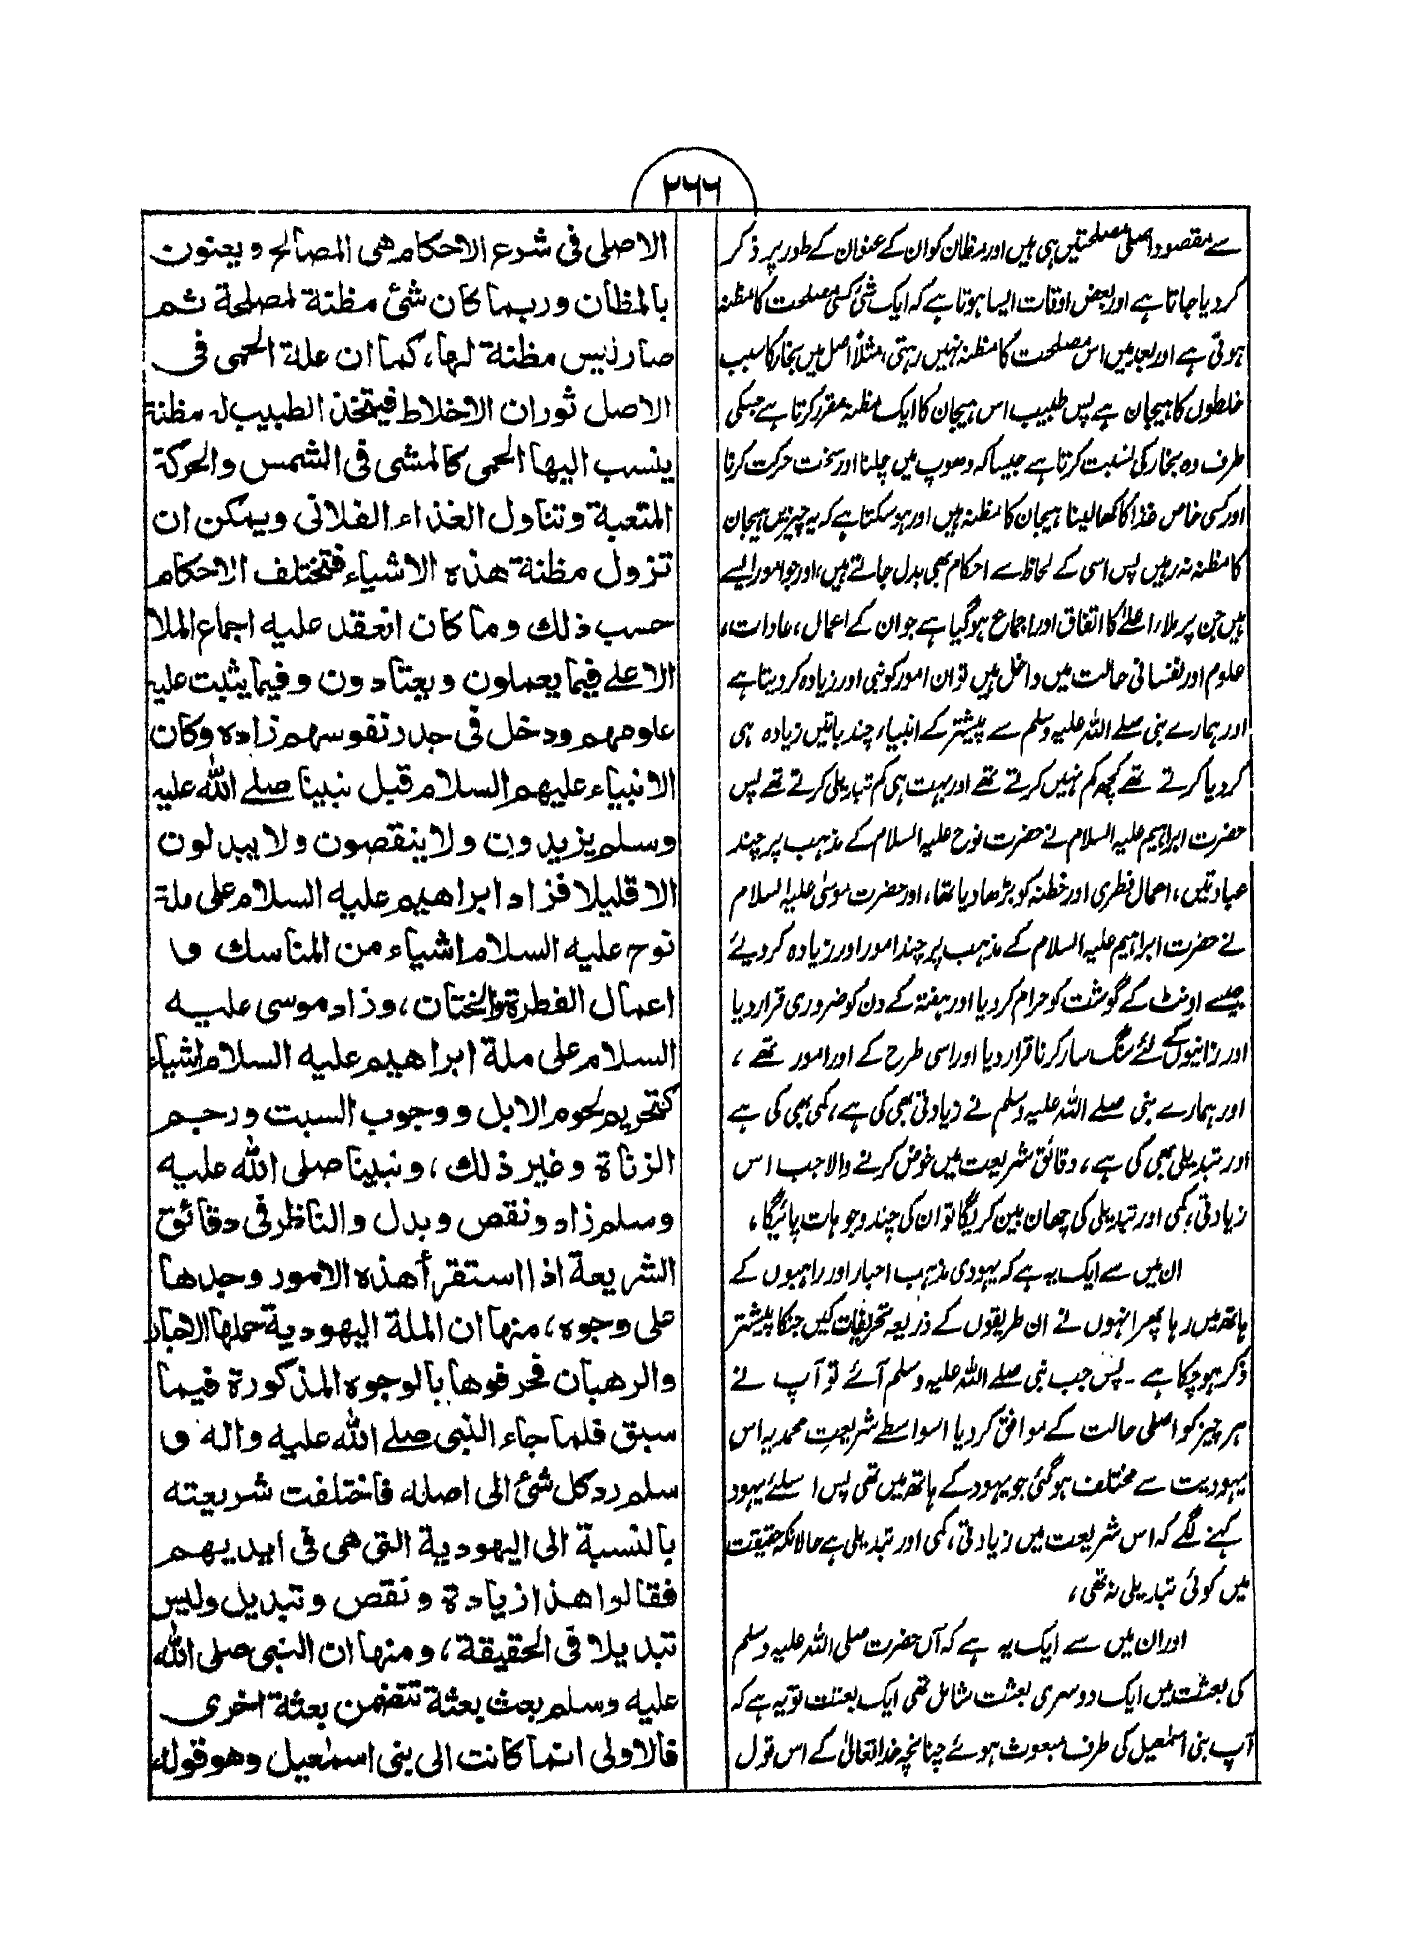 ۲۶۶
سے مقصود اصلی مصلحتیں ہی ہیں اور مظان کو ان کے عنوان کے طور پر ذکر
کر دیا جاتا ہے اور بعض اوقات ایسا ہوتا ہے کہ ایک شئ کسی مصلحت کا مظنہ
ہوتی ہے اور بعد میں اس مصلحت کا مظنہ نہیں رہتی، مثلاً اصل میں بخار کا سبب
خلطوں کا ہیجان ہے پس طبیب اس ہیجان کا ایک مظنہ مقرر کرتا ہے جسکی
طرف وہ بخار کی نسبت کرتا ہے جیسا کہ دھوپ میں چلنا اور سخت حرکت کرنا
اور کسی خاص غذا کا کھا لینا ہیجان کا مظنہ ہیں اور ہو سکتا ہے کہ یہ چیزیں ہیجان
کا مظنہ نہ رہیں پس اسی کے لحاظ سے احکام بھی بدل جاتے ہیں، اور جو امور ایسے
ہیں جن پر ملاء اعلےٰ کا اتفاق اور اجماع ہو گیا ہے جو ان کے اعمال، عادات،
علوم اور نفسانی حالت میں داخل ہیں تو ان امور کو نبی اور زیادہ کر دیتا ہے
اور ہمارے نبی صلے اللہ علیہ وسلم سے پیشتر کے انبیاء چند باتیں زیادہ ہی
کر دیا کرتے تھے کچھ کم نہیں کرتے تھے اور بہت ہی کم تبدیلی کرتے تھے پس
حضرت ابراہیم علیہ السلام نے حضرت نوح علیہ السلام کے مذہب پر چند
عبادتیں، اعمال فطری اور خطنہ کو بڑھا دیا تھا، اور حضرت موسیٰ علیہ السلام
نے حضرت ابراہیم علیہ السلام کے مذہب پر چند امور اور زیادہ کر دیئے
جیسے اونٹ کے گوشت کو حرام کر دیا اور ہفتہ کے دن کو ضروری قرار دیا
اور زانیوں کے لئے سنگ سار کرنا قرار دیا اور اسی طرح کے اور امور تھے،
اور ہمارے نبی صلے اللہ علیہ وسلم نے زیادتی بھی کی ہے، کمی بھی کی ہے
اور تبدیلی بھی کی ہے، دقائق شریعت میں خوض کرنے والا جب اس
زیادتی، کمی اور تبدیلی کی چھان بین کریگا تو ان کی چند وجوہات پائیگا،
ان میں سے ایک یہ ہے کہ یہودی مذہب احبار اور راہبوں کے
ہاتھ میں رہا پھر انہوں نے ان طریقوں کے ذریعہ تحریفات کیں جنکا پیشتر
ذکر ہو چکا ہے ۔ پس جب نبی صلے اللہ علیہ وسلم آئے تو آپ نے
ہر چیز کو اصلی حالت کے موافق کر دیا اسواسطے شریعتِ محمدیہ اس
یہودیت سے مختلف ہو گئی جو یہود کے ہاتھ میں تھی پس اسلئے یہود
کہنے لگے کہ اس شریعت میں زیادتی، کمی اور تبدیلی ہے حالانکہ حقیقت
میں کوئی تبدیلی نہ تھی،
اور ان میں سے ایک یہ ہے کہ آں حضرت صلی اللہ علیہ وسلم
کی بعثت میں ایک دوسری بعثت شامل تھی ایک بعثت تو یہ ہے کہ
آپ بنی اسمٰعیل کی طرف مبعوث ہوئے چنانچہ خدا تعالیٰ کے اس قول
الاصلی فی شرع الاحکام هی المصالح و یعنون
بالمظان وربما کان شئ مظنة لمصلحة ثم
صار لیس مظنة لها، کما ان علة الحمی فی
الاصل ثوران الاخلاط فیتخذ الطبیب له مظنة
ینسب الیها الحمی کالمشی فی الشمس والحرکة
المتعبة وتناول الغذاء الفلانی ویمکن ان
تزول مظنة هذه الاشیاء فتختلف الاحکام
حسب ذلك وما کان انعقد علیه اجماع الملا
الاعلے فیما یعملون و یعتادون و فیما یثبت علیه
علومهم ودخل فی جذر نفوسهم زاده وکان
الانبیاء علیهم السلام قبل نبینا صلے الله علیه
وسلم یزیدون ولا ینقصون ولا یبدلون
الا قلیلا فزاد ابراهیم علیه السلام علی ملة
نوح علیه السلام اشیاء من المناسك و
اعمال الفطرة والختان، وزاد موسی علیه
السلام علی ملة ابراهیم علیه السلام اشیاء
کتحریم لحوم الابل ووجوب السبت ورجم
الزناة وغیر ذلك، ونبینا صلی الله علیه
وسلم زاد ونقص وبدل والناظر فی دقائق
الشریعة اذا استقرأ هذه الامور وجدها
علی وجوه، منها ان الملة الیهودیة حملها الاحبار
والرهبان فحرفوها بالوجوه المذکورة فیما
سبق فلما جاء النبی صلے الله علیه واله و
سلم رد کل شئ الی اصله فاختلفت شریعته
بالنسبة الی الیهودیة التی هی فی ایدیهم
فقالوا هذا زیادة ونقص وتبدیل ولیس
تبدیلا فی الحقیقة، ومنها ان النبی صلی الله
علیه وسلم بعث بعثة تتضمن بعثة اخری
فالاولی انما کانت الی بنی اسمٰعیل وهو قوله